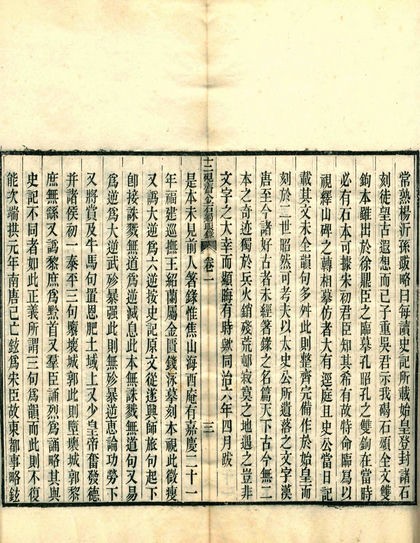 常熟楊沂孫跋略曰每讀史記所載始皇登封諸石
刻徒望古遐想而已子重吳君示我碣石頌全文雙
鉤本雖出於徐騅臣之臨摹孔昭孔之雙鉤在當時
必有石本可據宋初君臣知其希有故特命臨寫以
視繹山碑之轉相摹仿者大有逕庭且史公當日記
載其文未全韻句多舛此則整齊完備作於始皇而
刻於二世昭然可考夫以太史公所遺落之文字漢
唐至今諸好古者未經著錄之名篇天下古今無二
本之奇迹獨於兵火銷殘荒邨寂寞之地遇之豈非
文字之大幸而顯晦有時歟同治六年四月跋
十二硯齋金石過眼錄 卷一 三
是本未見前人著錄惟焦山海西庵有嘉慶二十一
年福建巡撫王紹蘭屬金匱錢泳摹刻本視此微瘦
又譌大逆爲六逆按史記原文從遂興師旅句起下
卽接誅戮無道句爲逆滅息此本無誅戮無道句又易
爲逆爲大逆武殄暴强此則無殄暴逆恵論功勞下
又將賞及牛馬句置恩肥土域上又少皇帝奮發德
并諸侯初一泰平三句墮壞城郭此則墮壞城郭黎
庶無繇又譌黎庶爲黔首又羣臣誦烈爲誦略其與
史記不同者如此正義所謂三句爲韻而此則不復
能次端拱元年南唐已亡鉉爲宋臣故東都事略鉉